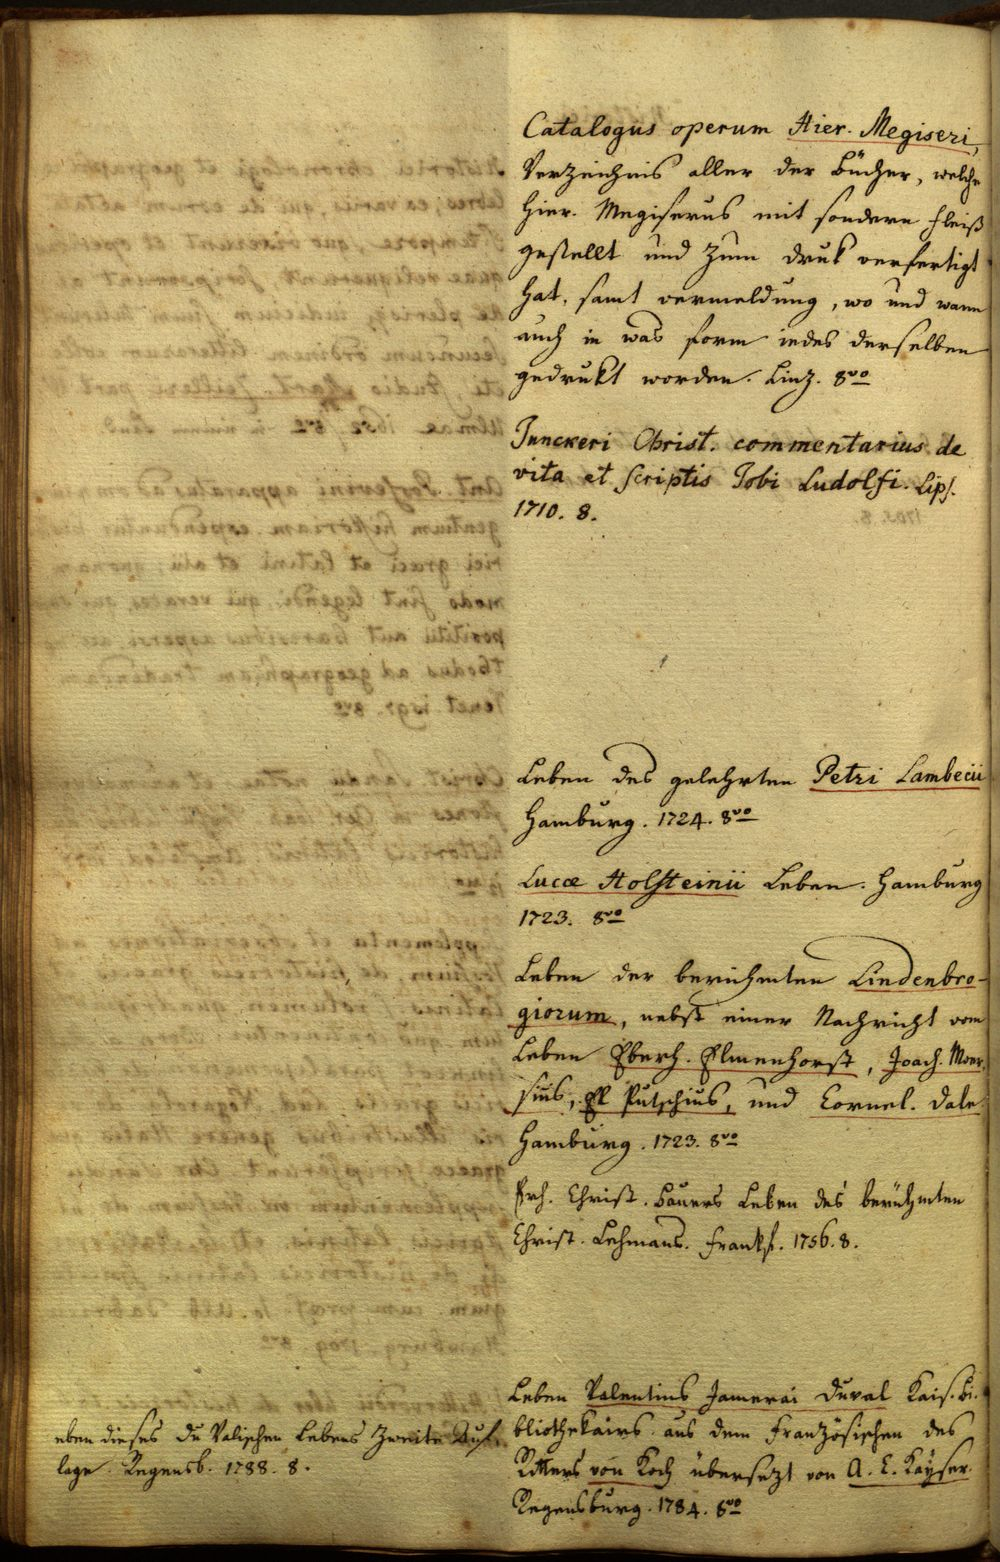 Catalogus operum Hier. Megiseri,
Verzeichnis aller der Bücher, welche
Hier. Megiserus mit sondern Fleiß
gestellt und zum druk verfertigt
hat, samt vermeldung, wo und wann
auch in was form iedes derselben
gedrukt worden. Linz. 8vo
Junckeri Christ. commentarius de
vita et scriptis Jobi Ludolfi. Lips.
1710. 8.
Leben des gelehrten Petri Lambecii
Hamburg. 1724. 8vo
Lucæ Holsteinii Leben. Hamburg
1723. 8vo
Leben der berühmten Lindenbro-
giorum, nebst einer Nachricht vom
Leben Eberh. Elmenhorst, Joach. Moer-
sius, Putschius, und Cornel. Dale
Hamburg. 1723. 8vo
Erh. Christ. Bauers Leben des berühmten
Christ. Lehmans. Frankf. 1756. 8.
Leben Valentins Jamerai Duval Kais. Bi-
bliothekairs aus dem Französischen des
Ritters von Koch übersezt von A. C. Kayser
Regensburg. 1784. 8vo
eben dieses Du Valischen Lebens zweite Auf-
lage. Regensb. 1788. 8.